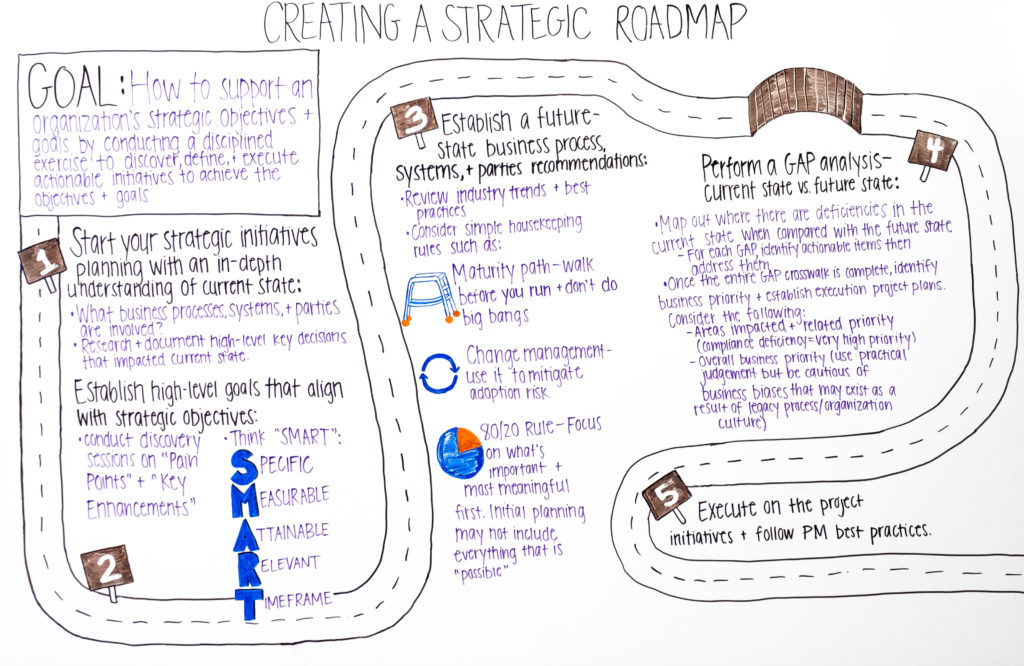 CREATING A STRATEGIC ROADMAP
GOAL: How to support an
organization's strategic objectives +
goals by conducting a disciplined
exercise to discover, define, + execute
actionable initiatives to achieve the
objectives + goals.
1
Start your strategic initiatives
planning with an in-depth
understanding of current state:
• What business processes, systems, + parties
are involved?
• Research + document high-level key decisions
that impacted current state.
2
Establish high-level goals that align
with strategic objectives:
• conduct discovery
sessions on "Pain
Points" + "Key
Enhancements"
• Think "SMART":
SPECIFIC
MEASURABLE
ATTAINABLE
RELEVANT
TIMEFRAME
3
Establish a future-
state business process,
systems, + parties recommendations:
• Review industry trends + best
practices
• Consider simple housekeeping
rules such as:
Maturity path - walk
before you run + don't do
big bangs
Change management-
use it to mitigate
adoption risk
80/20 Rule - Focus
on what's
important +
most meaningful
first. Initial planning
may not include
everything that is
"possible"
4
Perform a GAP analysis-
current state vs. future state:
• Map out where there are deficiencies in the
current state when compared with the future state
- For each GAP, identify actionable items then
address them
• Once the entire GAP crosswalk is complete, identify
business priority + establish execution project plans.
Consider the following:
- Areas impacted + related priority
(compliance deficiency = very high priority)
- Overall business priority (use practical
judgement but be cautious of
business biases that may exist as a
result of legacy process/organization
culture)
5
Execute on the project
initiatives + follow PM best practices.